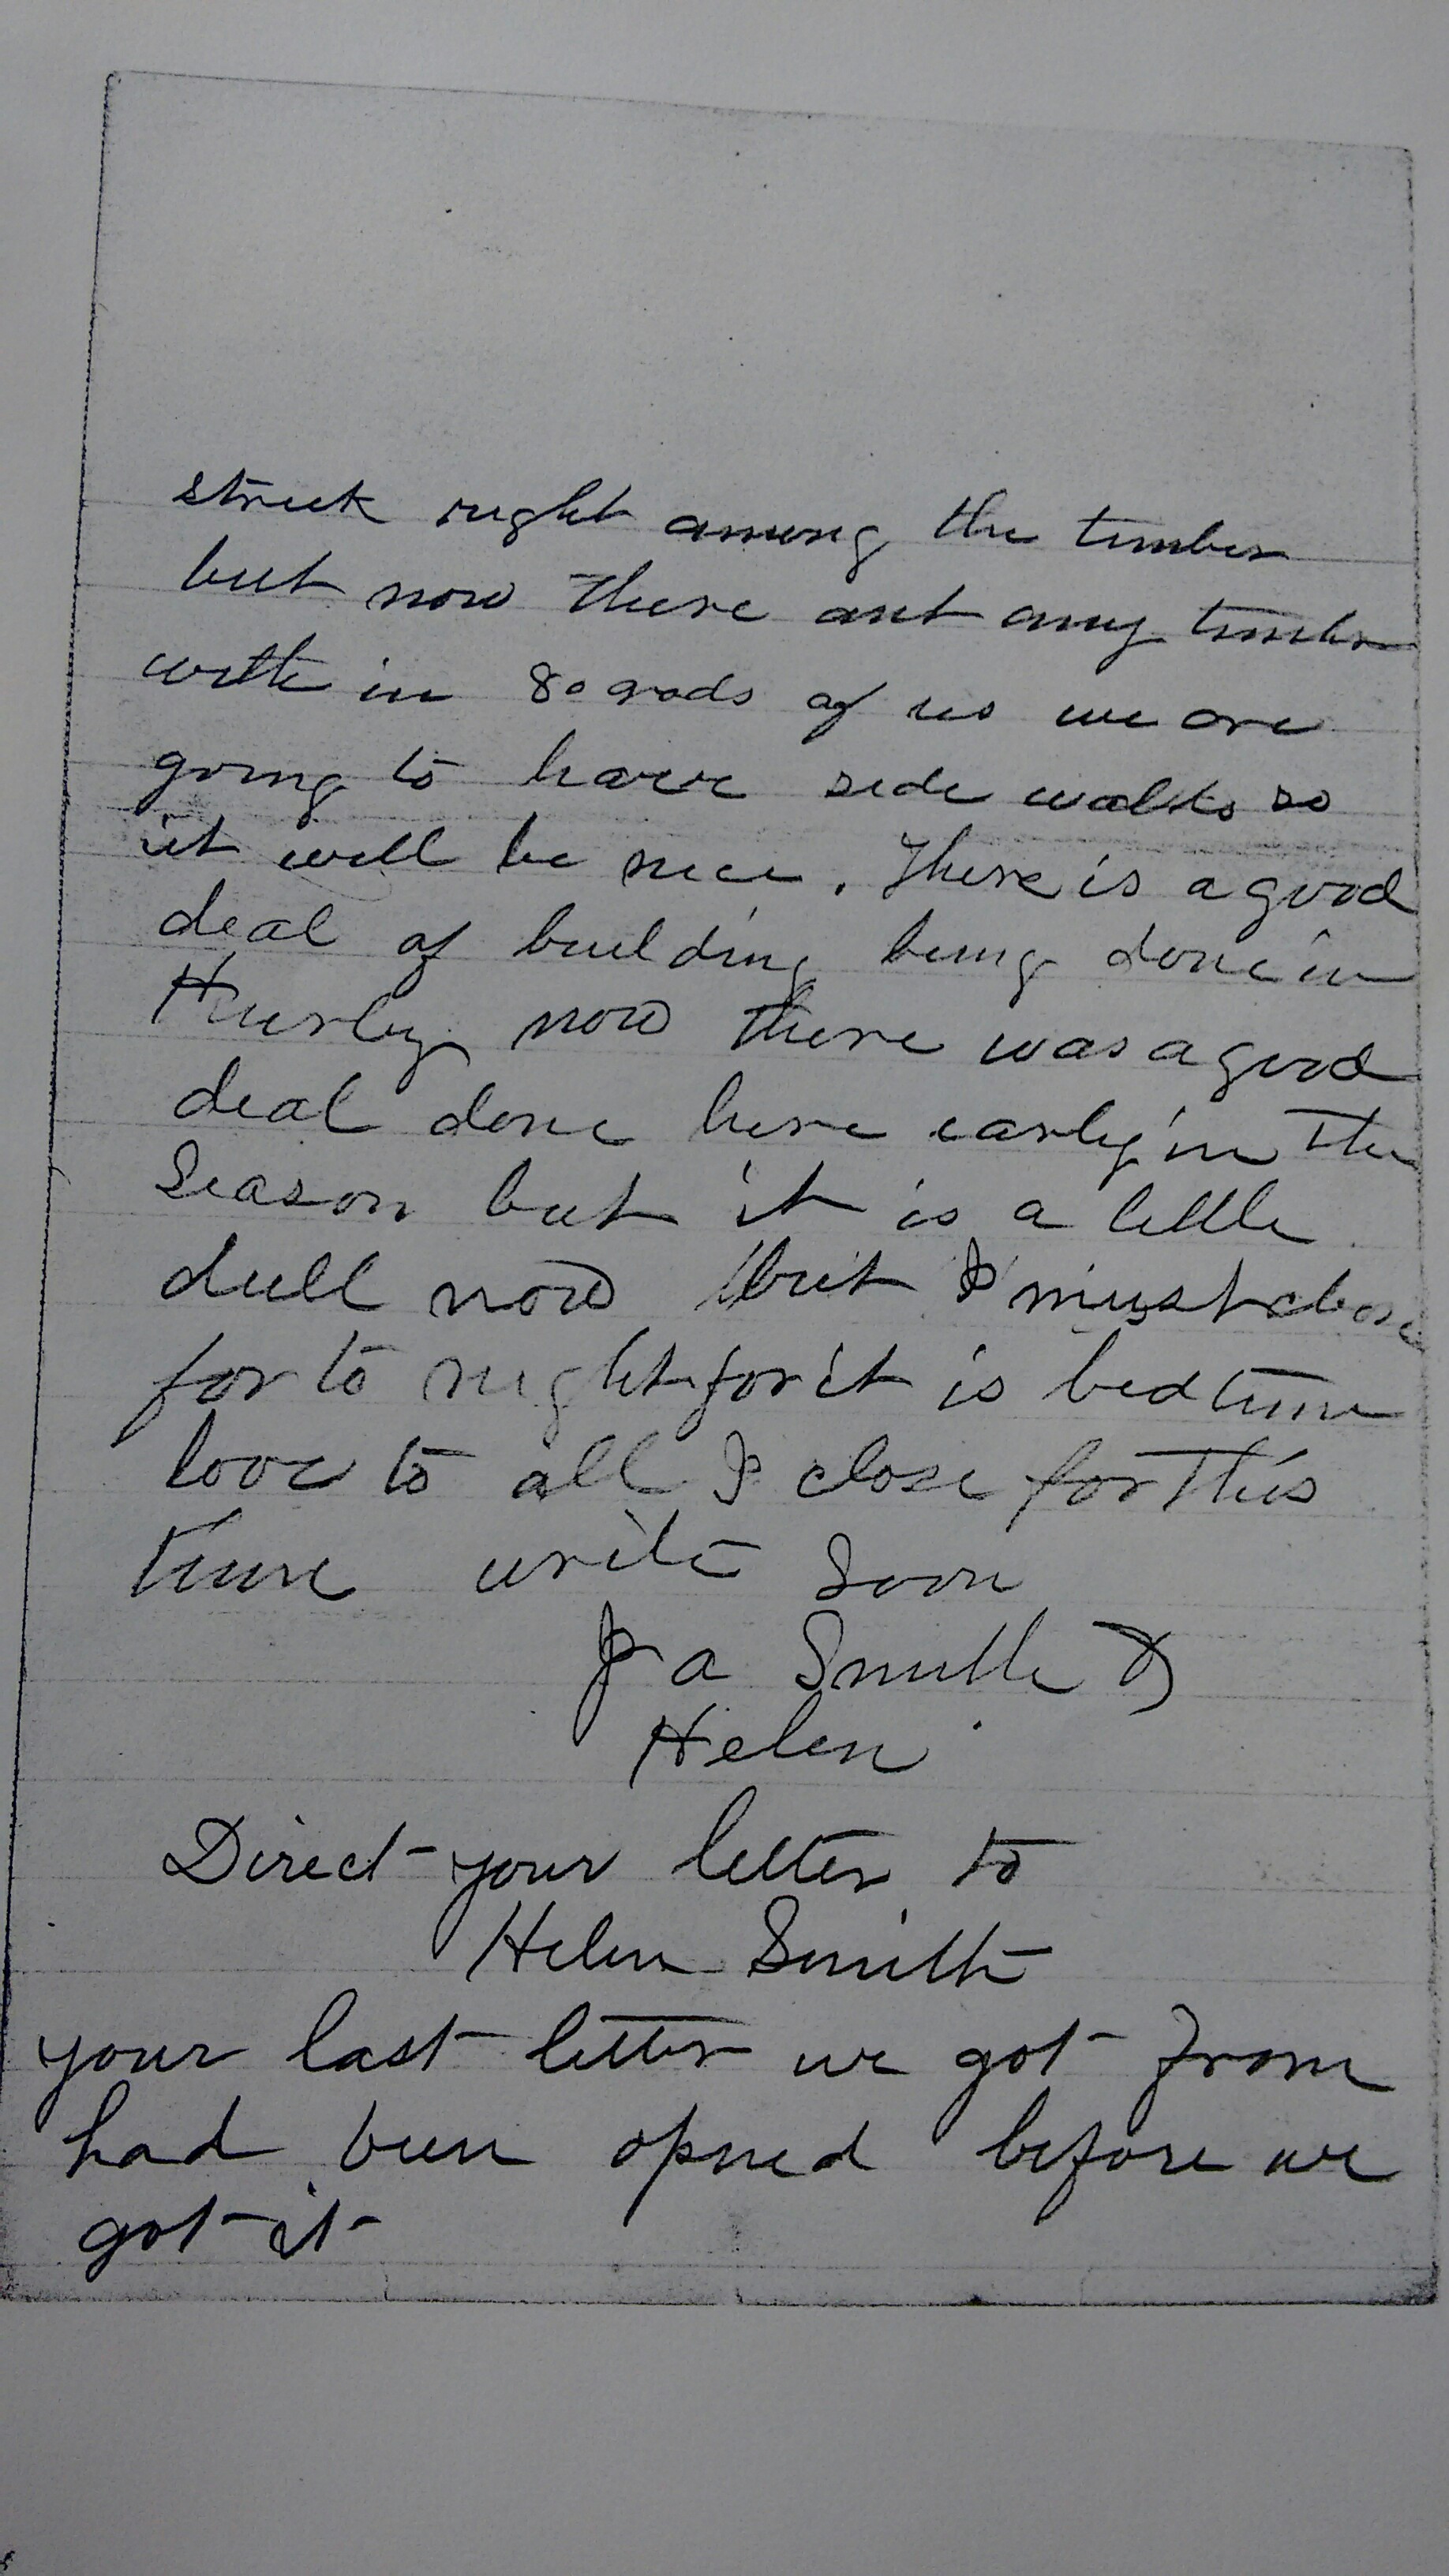 struck right among the timber
but now there ant any timber
with in 80 rods of us we are
going to have side walks so
it will be nice. There is a good
deal of building being done in
Hurley now there was a good
deal done here early in the
Season but it is a little
dull now but I must close
for to night for it is bedtime
love to all I close for this
time write soon
J a Smith &
Helen
Direct your letter to
Helen Smith
your last letter we got from
had been opned before we
got it